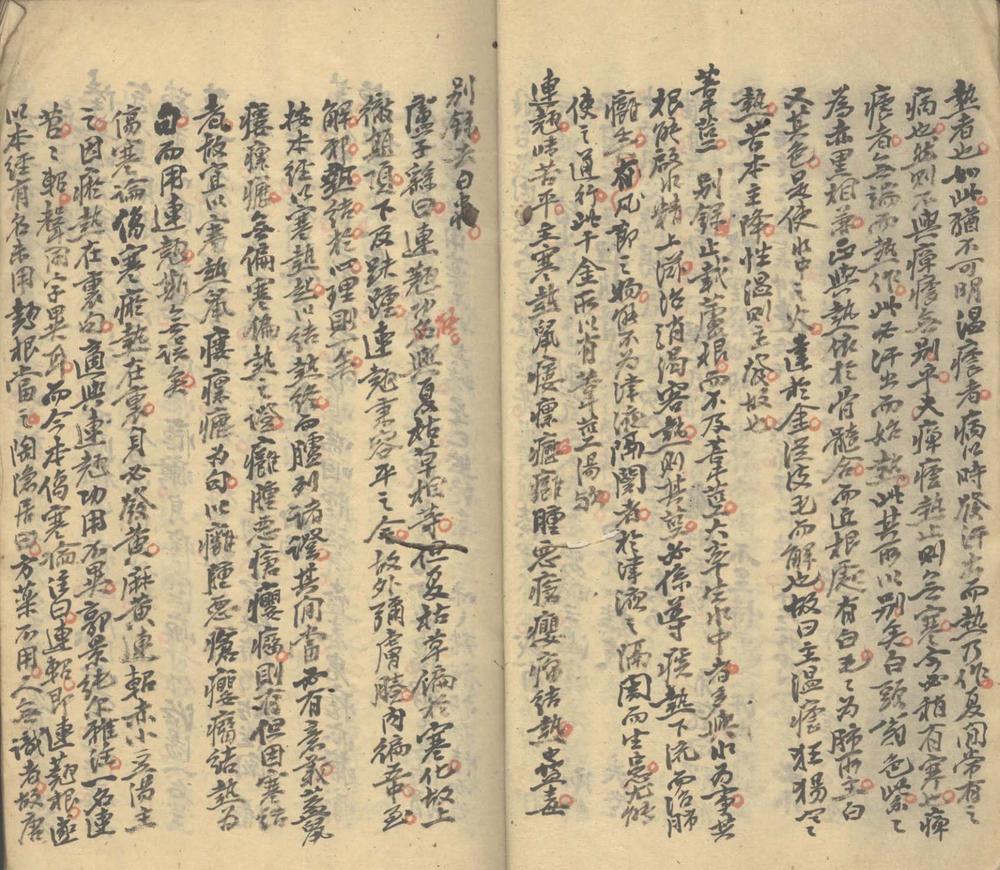 熱者也如此猶不可明温瘧者病以時發汗出而熱乃作夏間常有之
病也然則不與癉瘧無別乎夫癉瘧熱止則無寒今必稍有寒也癉
瘧者無端而熱作此必汗出而始熱此其所以別乎白頭翁色紫之
為赤黑相兼正與熱依於骨髓合而近根處有白毛之為肺所主白
又其色是使水中之火達於金從皮毛而解也故曰主温瘧狂猲今之
熱苦本主降性温則主發故也
苦草莖 別錄止載蘆根而不及葦莖大率生水中者多與水為事其
根能啟水精上滋治消渴客熱則其莖必係導瘀熱下流而治肺
癰也有凡節之嬈能不為津液隔閡者於津液之隔閡而生患尤能
使之通行此千金所以有葦莖湯歟
連翹味苦平主寒熱鼠瘻瘰癧癰腫惡瘡癭瘤結熱蠱毒
別錄去白蟲
盧子繇曰連翹必名與夏枯草相等但夏枯草偏於寒化故上
徹頭頂下及趺踵連翹秉容平之令故外彌膚腠內偏藏至
解邪熱結於心理則一矣
按本經以寒熱起以結熱終而臚列諸證其間當必有意義蓋鼠
瘻瘰癧無偏寒偏熱之證癰腫惡瘡癭瘤則有但因寒結
者故宜以寒熱鼠瘻瘰癧為句以癰腫惡瘡癭瘤結熱為
句而用連翹斯無誤矣
傷寒論傷寒瘀熱在裏身必發黃麻黃連軺赤小豆湯主
之因瘀熱在裏句適與連翹功用不異郭景純爾雅注一名連
苕之軺聲同字異耳而今本傷寒論注曰連軺即連翹根遂
以本經有名未用翹根當之陶隱居曰方藥不用人無識者故唐